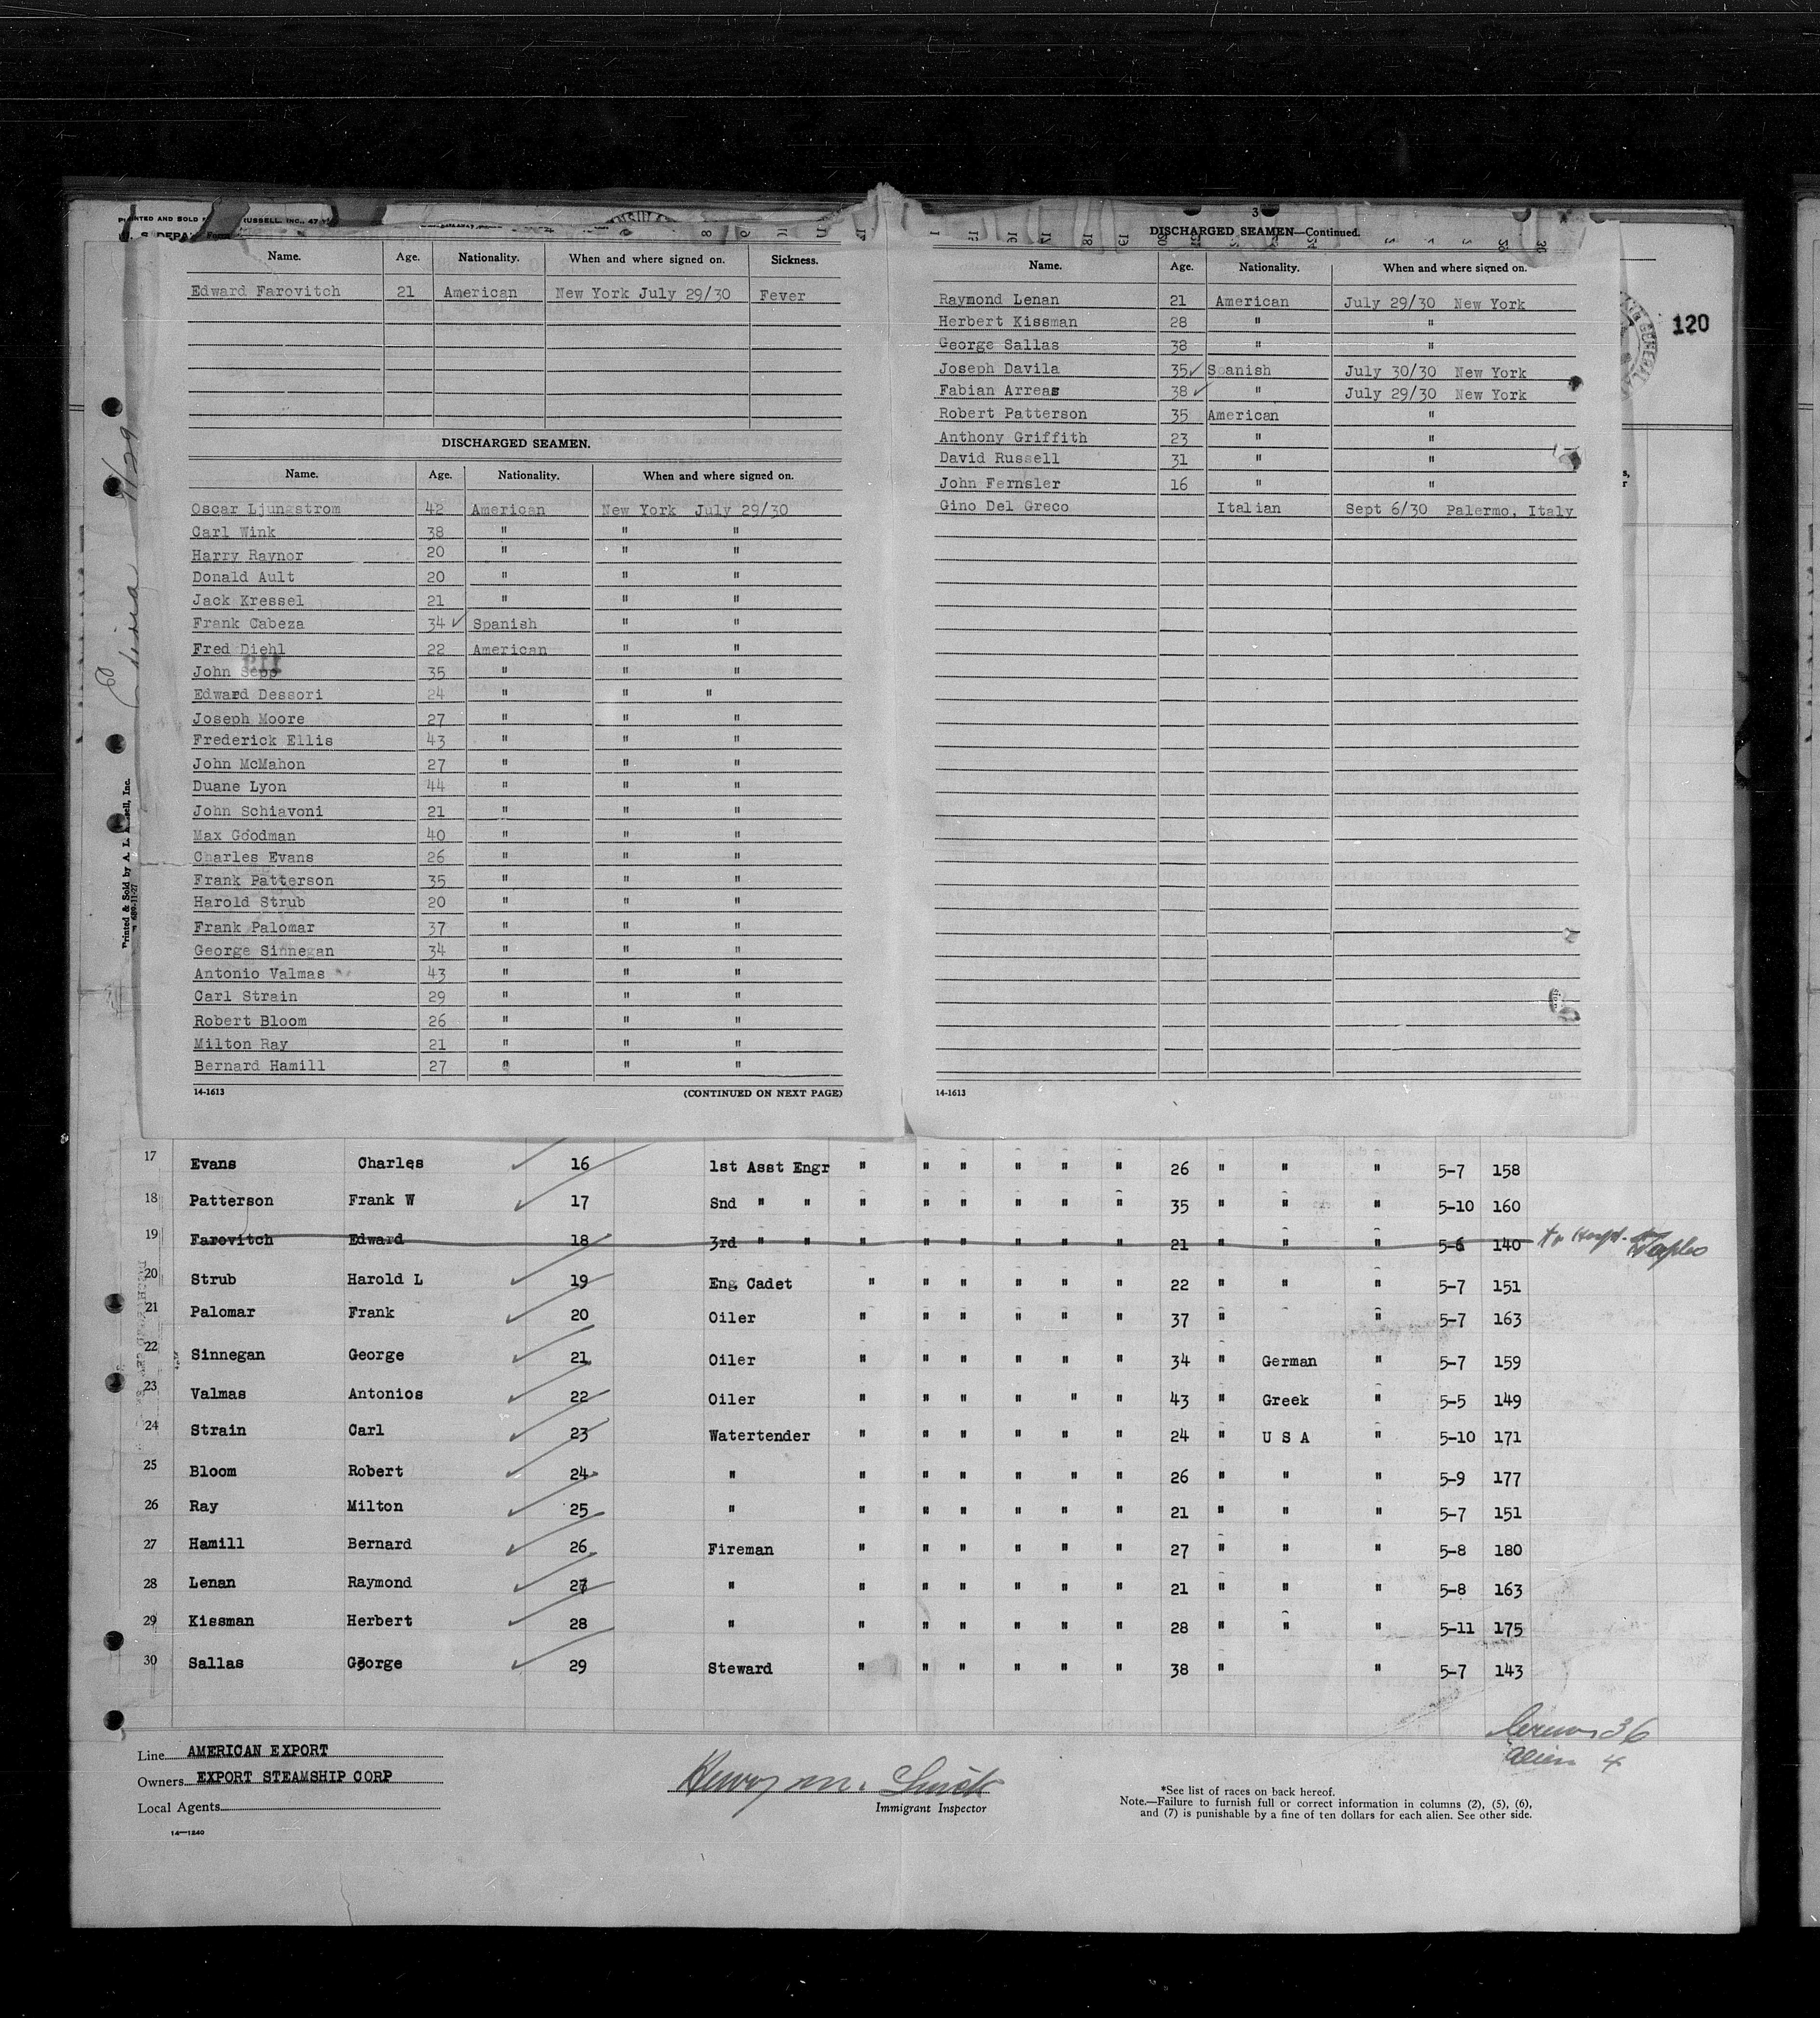 PRINTED AND SOLD RUSSELL, INC., 47
U. S. DEPA
Name. Age. Nationality. When and where signed on. Sickness.
Edward Farovitch 21 American New York July 29/30 Fever
DISCHARGED SEAMEN.
Name. Age. Nationality. When and where signed on.
Oscar Ljungstrom 42 American New York July 29/30
Carl Wink 38 " " "
Harry Raynor 20 " " "
Donald Ault 20 " " "
Jack Kressel 21 " " "
Frank Cabeza 34 ✓ Spanish " "
Fred Diehl 22 American " "
John Sepp 35 " " "
Edward Dessori 24 " " "
Joseph Moore 27 " " "
Frederick Ellis 43 " " "
John McMahon 27 " " "
Duane Lyon 44 " " "
John Schiavoni 21 " " "
Max Goodman 40 " " "
Charles Evans 26 " " "
Frank Patterson 35 " " "
Harold Strub 20 " " "
Frank Palomar 37 " " "
George Sinnegan 34 " " "
Antonio Valmas 43 " " "
Carl Strain 29 " " "
Robert Bloom 26 " " "
Milton Ray 21 " " "
Bernard Hamill 27 " " "
14-1613 (CONTINUED ON NEXT PAGE)
3
DISCHARGED SEAMEN—Continued.
Name. Age. Nationality. When and where signed on.
Raymond Lenan 21 American July 29/30 New York
Herbert Kissman 28 " "
George Sallas 38 " "
Joseph Davila 35 ✓ Spanish July 30/30 New York
Fabian Arreas 38 ✓ " July 29/30 New York
Robert Patterson 35 American "
Anthony Griffith 23 " "
David Russell 31 " "
John Fernsler 16 " "
Gino Del Greco Italian Sept 6/30 Palermo, Italy
14-1613
120
Printed & Sold by A. L. Russell, Inc.
17 Evans Charles ✓ 16 1st Asst Engr " " " " " " 26 " " " 5-7 158
18 Patterson Frank W ✓ 17 Snd " " " " " " " " 35 " " " 5-10 160
19 Farovitch Edward 18 3rd " " " " " " " " 21 " " " 5-6 140
20 Strub Harold L ✓ 19 Eng Cadet " " " " " " 22 " " " 5-7 151
21 Palomar Frank ✓ 20 Oiler " " " " " " 37 " " 5-7 163
22 Sinnegan George ✓ 21 Oiler " " " " " " 34 " German " 5-7 159
23 Valmas Antonios ✓ 22 Oiler " " " " " " 43 " Greek " 5-5 149
24 Strain Carl ✓ 23 Watertender " " " " " " 24 " U S A " 5-10 171
25 Bloom Robert ✓ 24 " " " " " " " 26 " " " 5-9 177
26 Ray Milton ✓ 25 " " " " " " " 21 " " " 5-7 151
27 Hamill Bernard ✓ 26 Fireman " " " " " " 27 " " " 5-8 180
28 Lenan Raymond ✓ 27 " " " " " " " 21 " " " 5-8 163
29 Kissman Herbert ✓ 28 " " " " " " " 28 " " " 5-11 175
30 Sallas George ✓ 29 Steward " " " " " " 38 " " 5-7 143
36
Alien 4
Line AMERICAN EXPORT
Owners EXPORT STEAMSHIP CORP
Local Agents
14—1240
Immigrant Inspector
*See list of races on back hereof.
Note.—Failure to furnish full or correct information in columns (2), (5), (6),
and (7) is punishable by a fine of ten dollars for each alien. See other side.